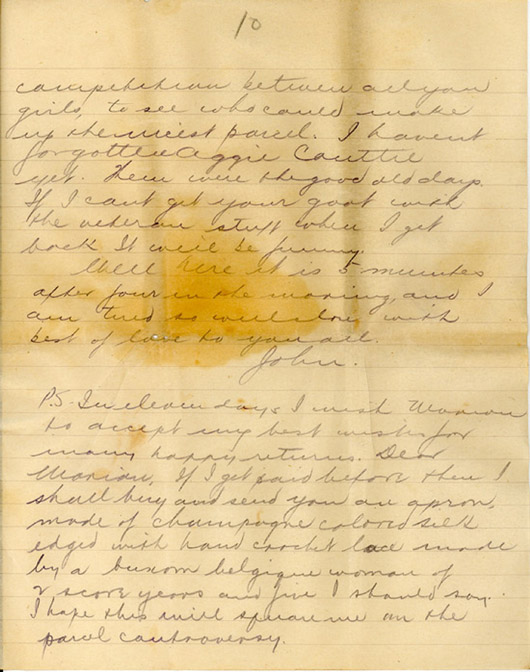 10
competition between all you
girls, to see who could make
up the nicest parcel. I havent
forgotten Aggie Couttie
yet. Them were the good old days.
If I cant get your goat with
the veteran stuff when I get
back It will be funny.
Well here it is 5 minutes
after four in the morning, and I
am tired so will close with
best of love to you all.
John.
P.S. In eleven days I wish Marian
to accept my best wishes for
many happy returns. Dear
Marian, If I get paid before then I
shall buy and send you an apron,
made of champagne colored silk
edged with hand crochet lace made
by a buxom belgique woman of
2 score years and five I should say.
I hope this will square me on the
parcel controversy.